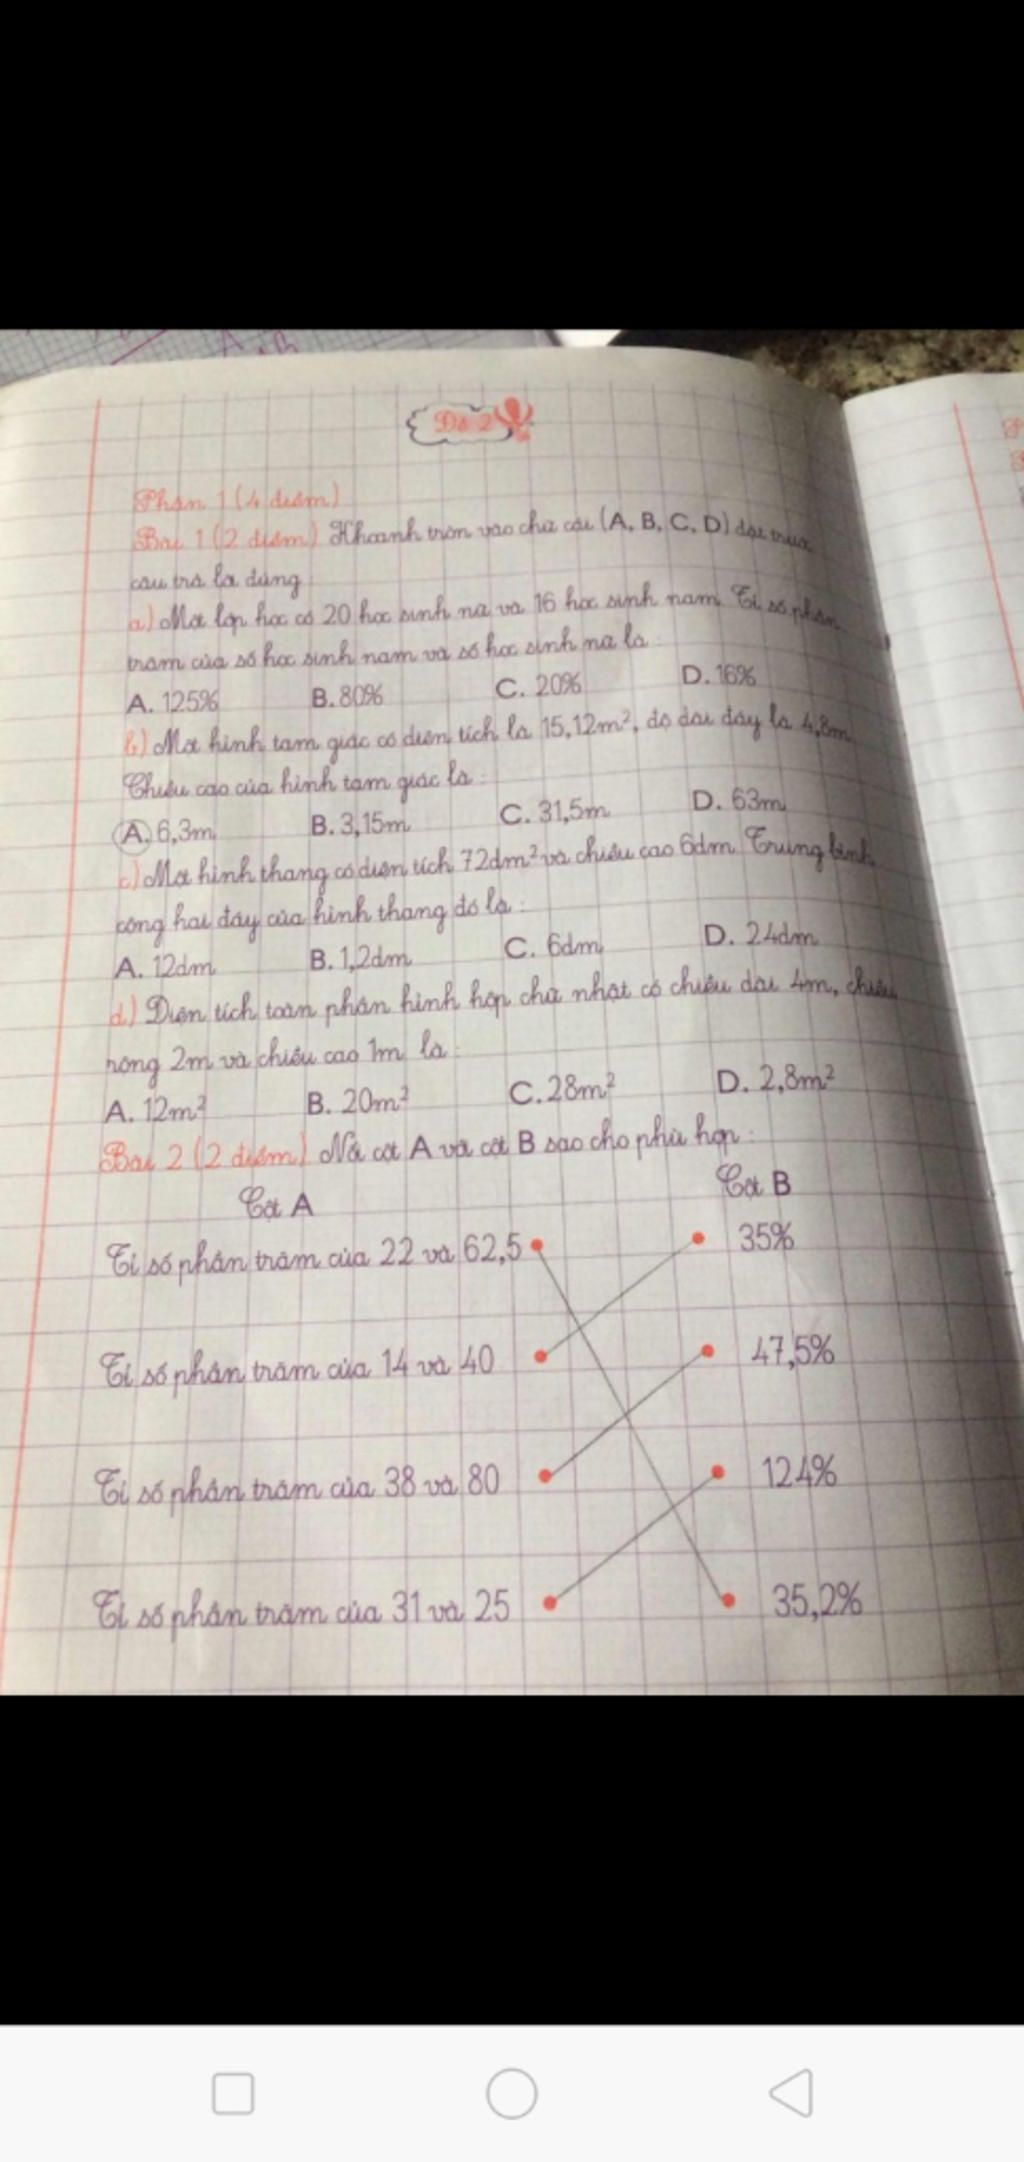 Đề 2
Phần 1 (4 điểm)
Bài 1 (2 điểm) Khoanh tròn vào chữ cái (A, B, C, D) đặt trước
câu trả lời đúng:
a) Một lớp học có 20 học sinh nữ và 16 học sinh nam. Tỉ số phần
trăm của số học sinh nam và số học sinh nữ là:
A. 125% B. 80% C. 20% D. 16%
b) Một hình tam giác có diện tích là 15,12m², độ dài đáy là 4,8m.
Chiều cao của hình tam giác là:
A. 6,3m B. 3,15m C. 31,5m D. 63m
c) Một hình thang có diện tích 72dm² và chiều cao 6dm. Trung bình
cộng hai đáy của hình thang đó là:
A. 12dm B. 1,2dm C. 6dm D. 24dm
d) Diện tích toàn phần hình hộp chữ nhật có chiều dài 4m, chiều
rộng 2m và chiều cao 1m là:
A. 12m² B. 20m² C. 28m² D. 2,8m²
Bài 2 (2 điểm) Nối cột A và cột B sao cho phù hợp:
Cột A Cột B
Tỉ số phần trăm của 22 và 62,5 35%
Tỉ số phần trăm của 14 và 40 47,5%
Tỉ số phần trăm của 38 và 80 124%
Tỉ số phần trăm của 31 và 25 35,2%